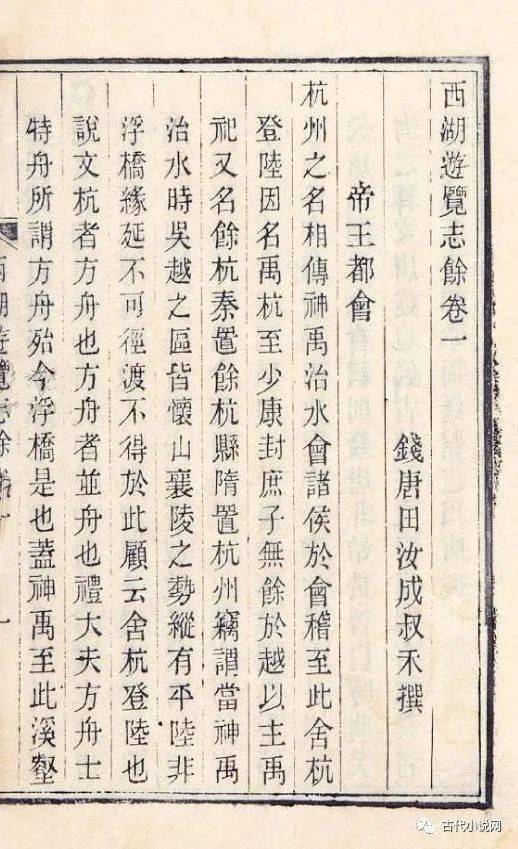 西湖遊覽志餘卷一
錢唐田汝成叔禾撰
帝王都會
杭州之名相傳神禹治水會諸侯於會稽至此舍杭
登陸因名禹杭至少康封庶子無餘於越以主禹
祀又名餘杭秦置餘杭縣隋置杭州竊謂當神禹
治水時吳越之區皆懷山襄陵之勢縱有平陸非
浮橋緣延不可徑渡不得於此顧云舍杭登陸也
說文杭者方舟也方舟者並舟也禮大夫方舟士
特舟所謂方舟殆今浮橋是也蓋神禹至此溪壑
西湖遊覽志餘卷一
一
古代小说网